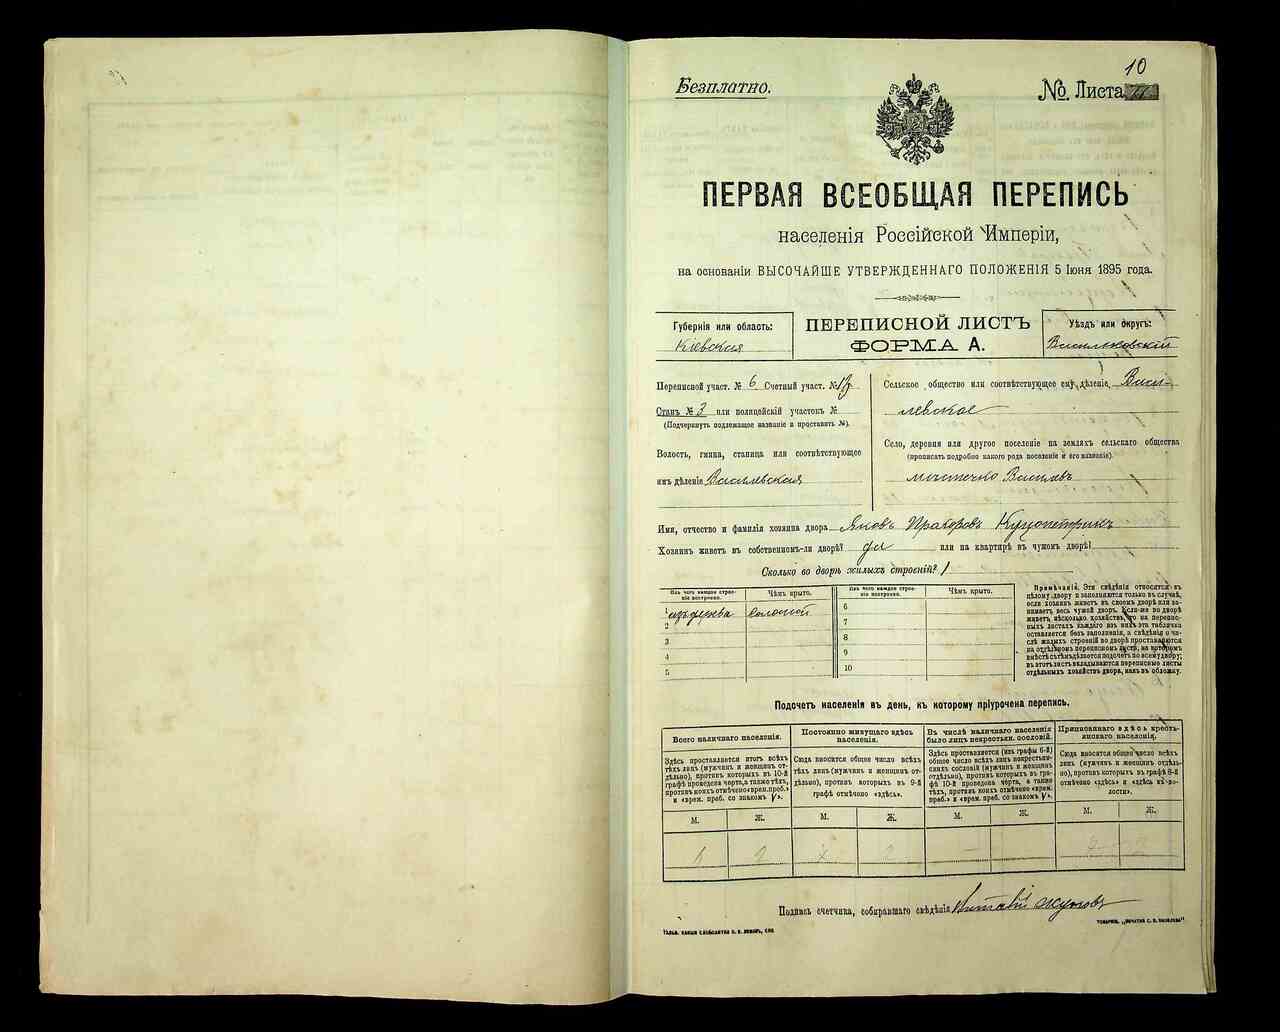 10
Безплатно.
№ Листа
ПЕРВАЯ ВСЕОБЩАЯ ПЕРЕПИСЬ
населенія Россійской Имперіи,
на основаніи ВЫСОЧАЙШЕ УТВЕРЖДЕННАГО ПОЛОЖЕНІЯ 5 Іюня 1895 года.
Губернія или область:
Кіевская
ПЕРЕПИСНОЙ ЛИСТЪ
ФОРМА А.
Уѣздъ или округъ:
Васильковскій
Переписной участ. № 6 Счетный участ. №
Станъ № 3 или полицейскій участокъ №
(Подчеркнуть подлежащее названіе и проставить №).
Волость, гмина, станица или соотвѣтствующее
имъ дѣленіе Василевская
Сельское общество или соотвѣтствующее ему дѣленіе Васи-
левское
Село, деревня или другое поселеніе на земляхъ сельскаго общества
(прописать подробно какого рода поселеніе и его названіе).
мѣстечко Василевъ
Имя, отчество и фамилія хозяина двора Яковъ Прохоровъ
Хозяинъ живетъ въ собственномъ-ли дворѣ? да или на квартирѣ въ чужомъ дворѣ?
Сколько во дворѣ жилыхъ строеній? 1
Изъ чего каждое строе-
ніе построено.
Чѣмъ крыто.
Изъ чего каждое строе-
ніе построено.
Чѣмъ крыто.
1 изъ дерева соломой
2
3
4
5
6
7
8
9
10
Примѣчаніе. Эти свѣдѣнія относятся къ
цѣлому двору и заполняются только въ случаѣ,
если хозяинъ живетъ въ своемъ дворѣ или за-
нимаетъ весь чужой дворъ. Если-же во дворѣ
живетъ нѣсколько хозяйствъ, то на перепис-
ныхъ листахъ каждаго изъ нихъ эта табличка
оставляется безъ заполненія, а свѣдѣнія о чи-
слѣ жилыхъ строеній во дворѣ проставляются
на отдѣльномъ переписномъ листѣ, на которомъ
вмѣстѣ съ тѣмъ дѣлается подсчетъ по всему двору;
въ этотъ листъ вкладываются переписные листы
отдѣльныхъ хозяйствъ двора, какъ въ обложку.
Подсчетъ населенія въ день, къ которому пріурочена перепись.
Всего наличнаго населенія.
Здѣсь проставляется итогъ всѣхъ
тѣхъ лицъ (мужчинъ и женщинъ от-
дѣльно), противъ которыхъ въ 10-й
графѣ проведена черта, а также тѣхъ,
противъ коихъ отмѣчено «врем. преб.»
и «врем. преб. со знакомъ V».
Постоянно живущаго здѣсь
населенія.
Сюда вносится общее число всѣхъ
тѣхъ лицъ (мужчинъ и женщинъ от-
дѣльно), противъ которыхъ въ 9-й
графѣ отмѣчено «здѣсь».
Въ числѣ наличнаго населенія
было лицъ некрестьян. сословій.
Здѣсь проставляется (изъ графы 6-й)
общее число всѣхъ лицъ некрестьян-
скихъ сословій (мужчинъ и женщинъ
отдѣльно), противъ которыхъ въ гра-
фѣ 10-й проведена черта, а также
тѣхъ, противъ коихъ отмѣчено «врем.
преб.» и «врем. преб. со знакомъ V».
Приписаннаго здѣсь кресть-
янскаго населенія.
Сюда вносятся общее число всѣхъ
лицъ (мужчинъ и женщинъ отдѣль-
но), противъ которыхъ въ графѣ 8-й
отмѣчено «здѣсь» и «здѣсь въ во-
лости».
М. Ж. М. Ж. М. Ж. М. Ж.
Подпись счетчика, собиравшаго свѣдѣнія